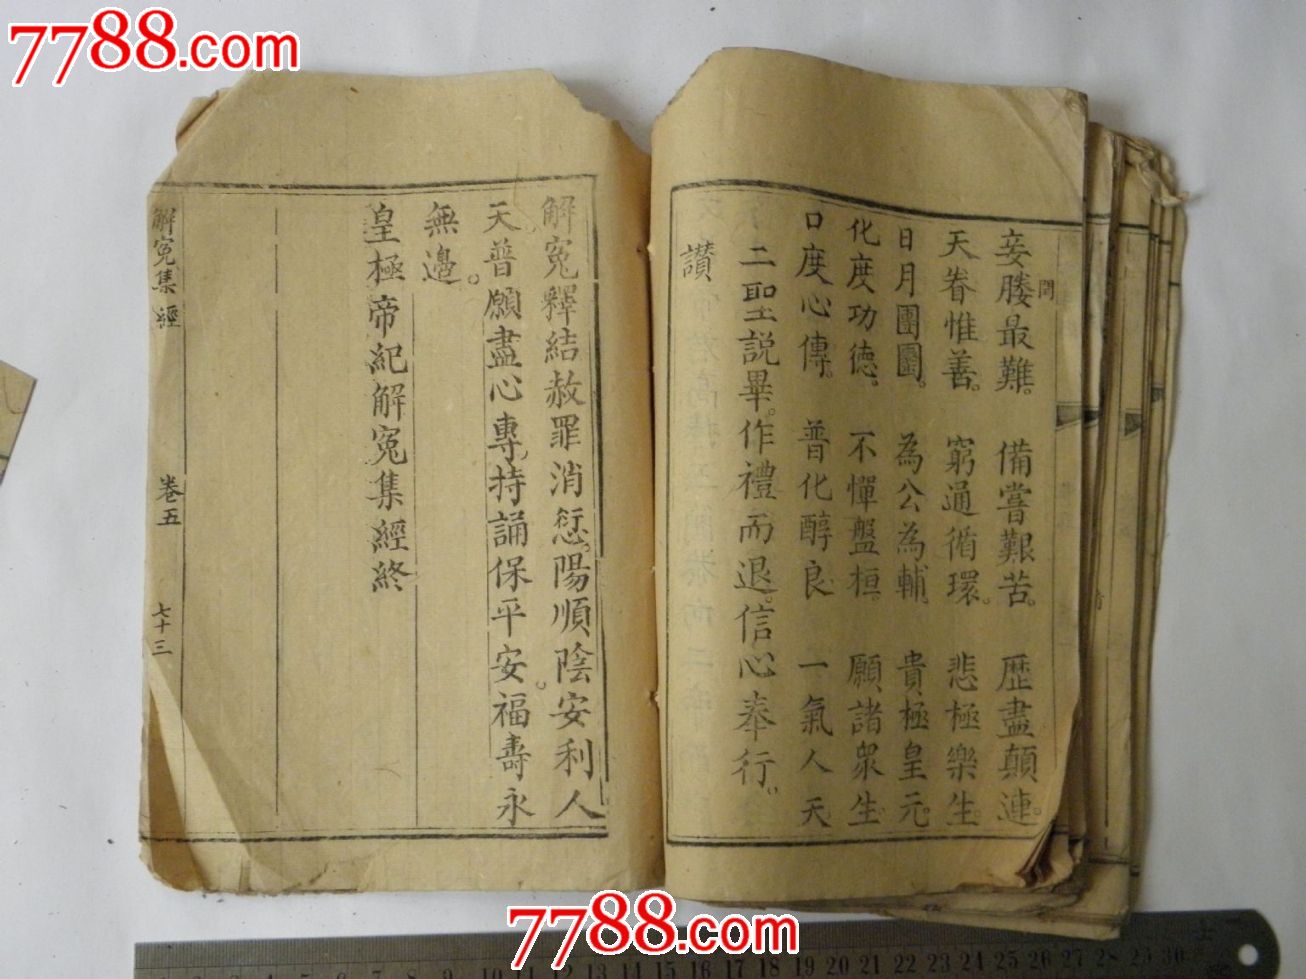 7788.com
妾媵最難。 備嘗艱苦。 歷盡顛連。
天眷惟善。 窮通循環。 悲極樂生。
日月團圞。 為公為輔。 貴極皇元。
化度功德。 不憚盤桓。 願諸眾生。
口度心傳。 普化醇良 一氣人天
二聖説畢。作禮而退。信心奉行。
讃
解寃釋結赦罪消愆。陽順陰安利人
天。普願盡心專。持誦保平安。福壽永
無邊。
皇極帝紀解寃集經終
解寃集經
卷五
七十三
7788.com